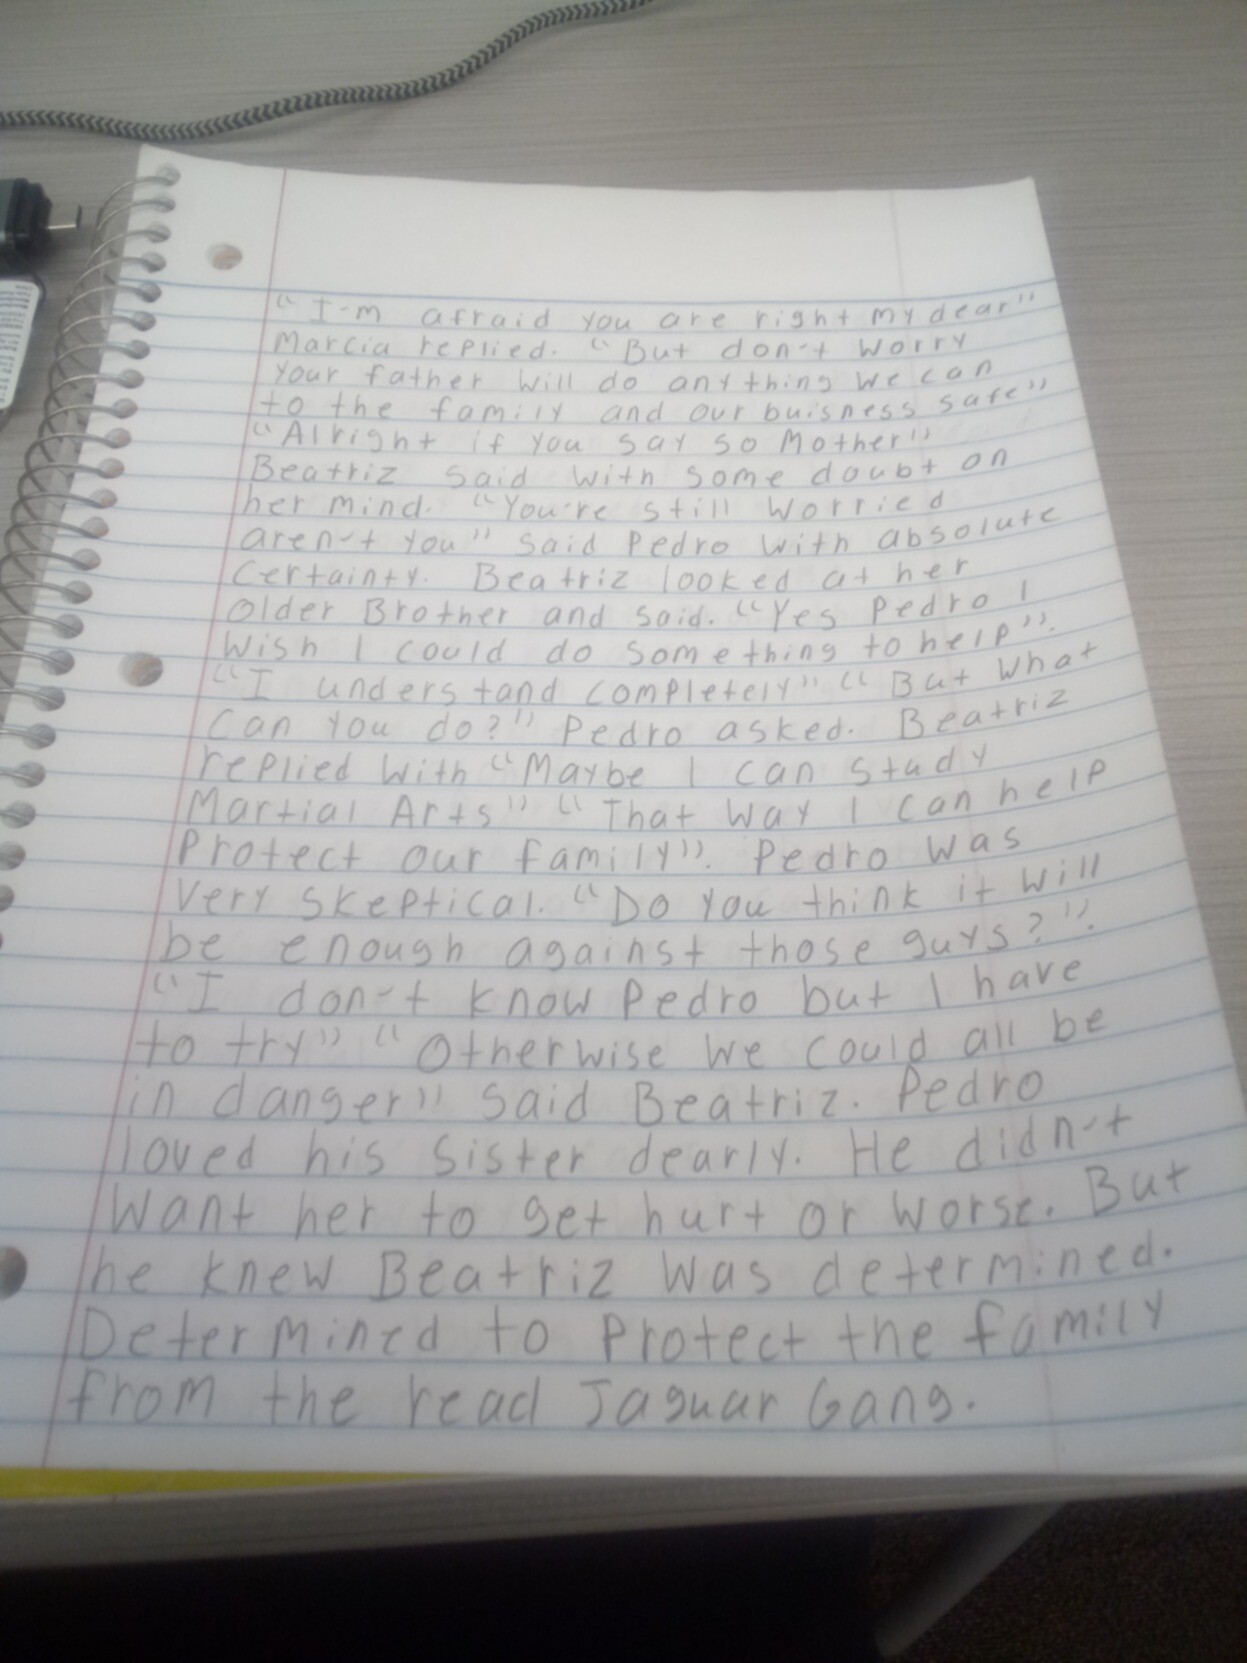 “I-m afraid you are right my dear”
Marcia replied. “But don-t worry
your father will do anything we can
to the family and our buisness safe”
“Alright if you say so Mother”
Beatriz said with some doubt on
her mind. “You-re still worried
aren-t you” said Pedro with absolute
certainty. Beatriz looked at her
older Brother and said. “Yes Pedro I
wish I could do something to help”.
“I understand completely” “But what
can you do?” Pedro asked. Beatriz
replied with “Maybe I can study
Martial Arts” “That way I can help
Protect our family”. Pedro was
very skeptical. “Do you think it will
be enough against those guys?”.
“I don-t know Pedro but I have
to try” “Otherwise we could all be
in danger” said Beatriz. Pedro
loved his sister dearly. He didn-t
want her to get hurt or worse. But
he knew Beatriz was determined.
Determined to Protect the family
from the read Jaguar Gang.